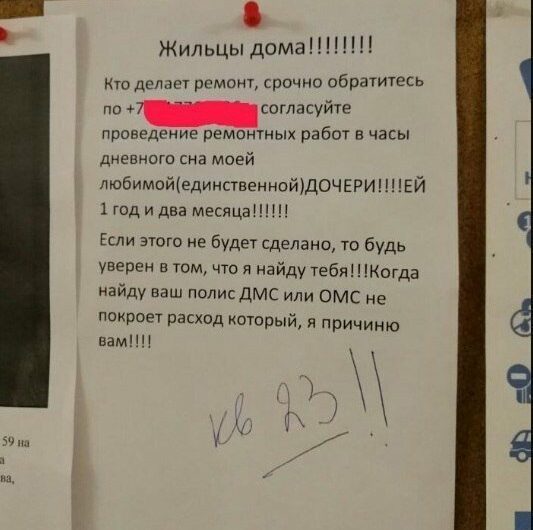 Жильцы дома!!!!!!!!
Кто делает ремонт, срочно обратитесь
по +7 согласуйте
проведение ремонтных работ в часы
дневного сна моей
любимой(единственной)ДОЧЕРИ!!!!ЕЙ
1 год и два месяца!!!!!!
Если этого не будет сделано, то будь
уверен в том, что я найду тебя!!!Когда
найду ваш полис ДМС или ОМС не
покроет расход который, я причиню
вам!!!!
кв 23!!
59 на
а
ва,